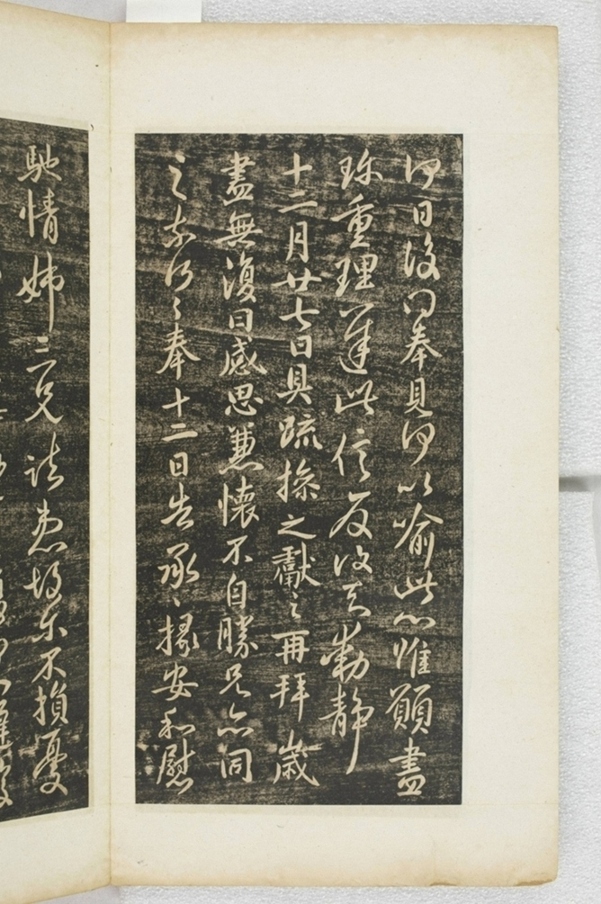 何日復得奉見何以喻此心惟願盡
珍重理遲此信反復知動靜
十二月廿七日具疏操之獻之再拜歲
盡無復日感思兼懷不自勝兄亦同
之奈何〻奉十二日告承〻掾安和慰
馳情姊三兄諸患故不損憂